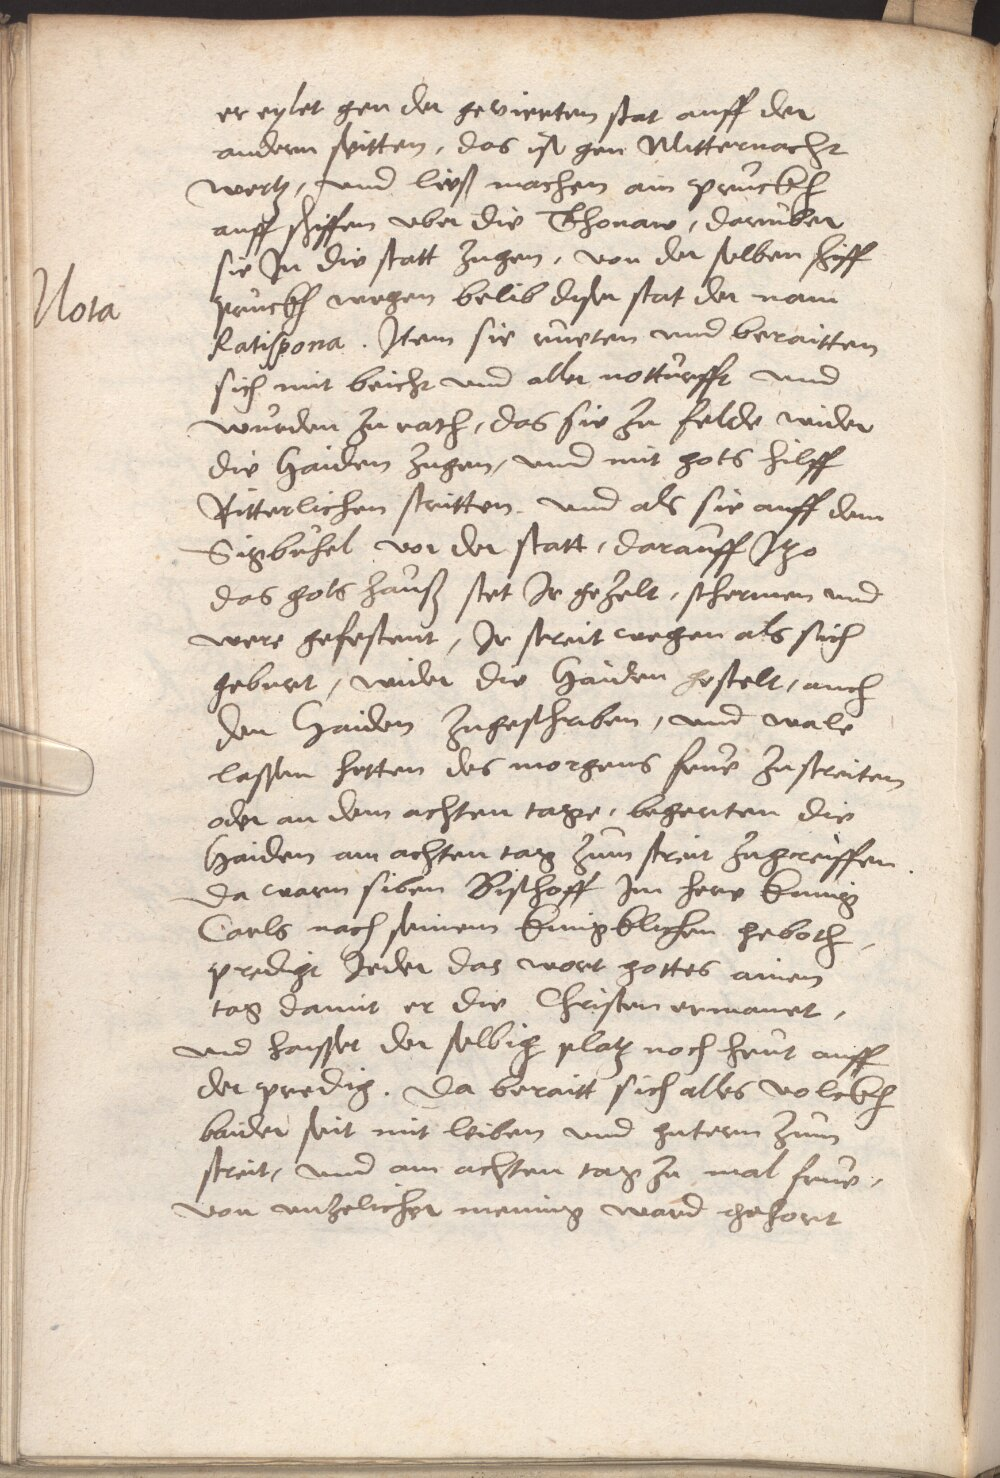 er eylet gen der gevierten stat auff der
andern seitten, das ist gen Mitternacht
wertz, und ließ machen ain pruckh
auff schiffen uber die Thonaw, daruber
sie In die statt zugen, von der selben schiff
Nota
pruckh wegen belib diser stat der nam
Ratispona. Item sie rueten und beraitten
sich mit beicht und aller notturfft und
wurden zu rath, das sie zu felde wider
die Haiden zugen, und mit gots hilff
Ritterlichen stritten. und als sie auff dem
Sigbuhel vor der statt, darauff Itzo
das gots hauß stet Ir gezelt, schermen und
were gefestent, Ir streit wegen als sich
geburt, wider die Haiden gestelt, auch
den Haiden zugeschriben, und wale
lassen hetten des morgens frue zustreiten
oder an dem achten tage, begerten die
Haiden am achten tag zum streit zugreiffen.
Da warn siben Bischoff Im here kunig
Carls nach seinem kunigklichen geboth,
predigt Jeder das wort gottes ainen
tag damit er die Christen ermanet,
und haisset der selbig platz noch heut auff
der predig. Da berait sich alles volckh
baider seit mit leiben und gutern zum
streit, und am achten tag zu mal frue,
von unzelicher mening ward gehort